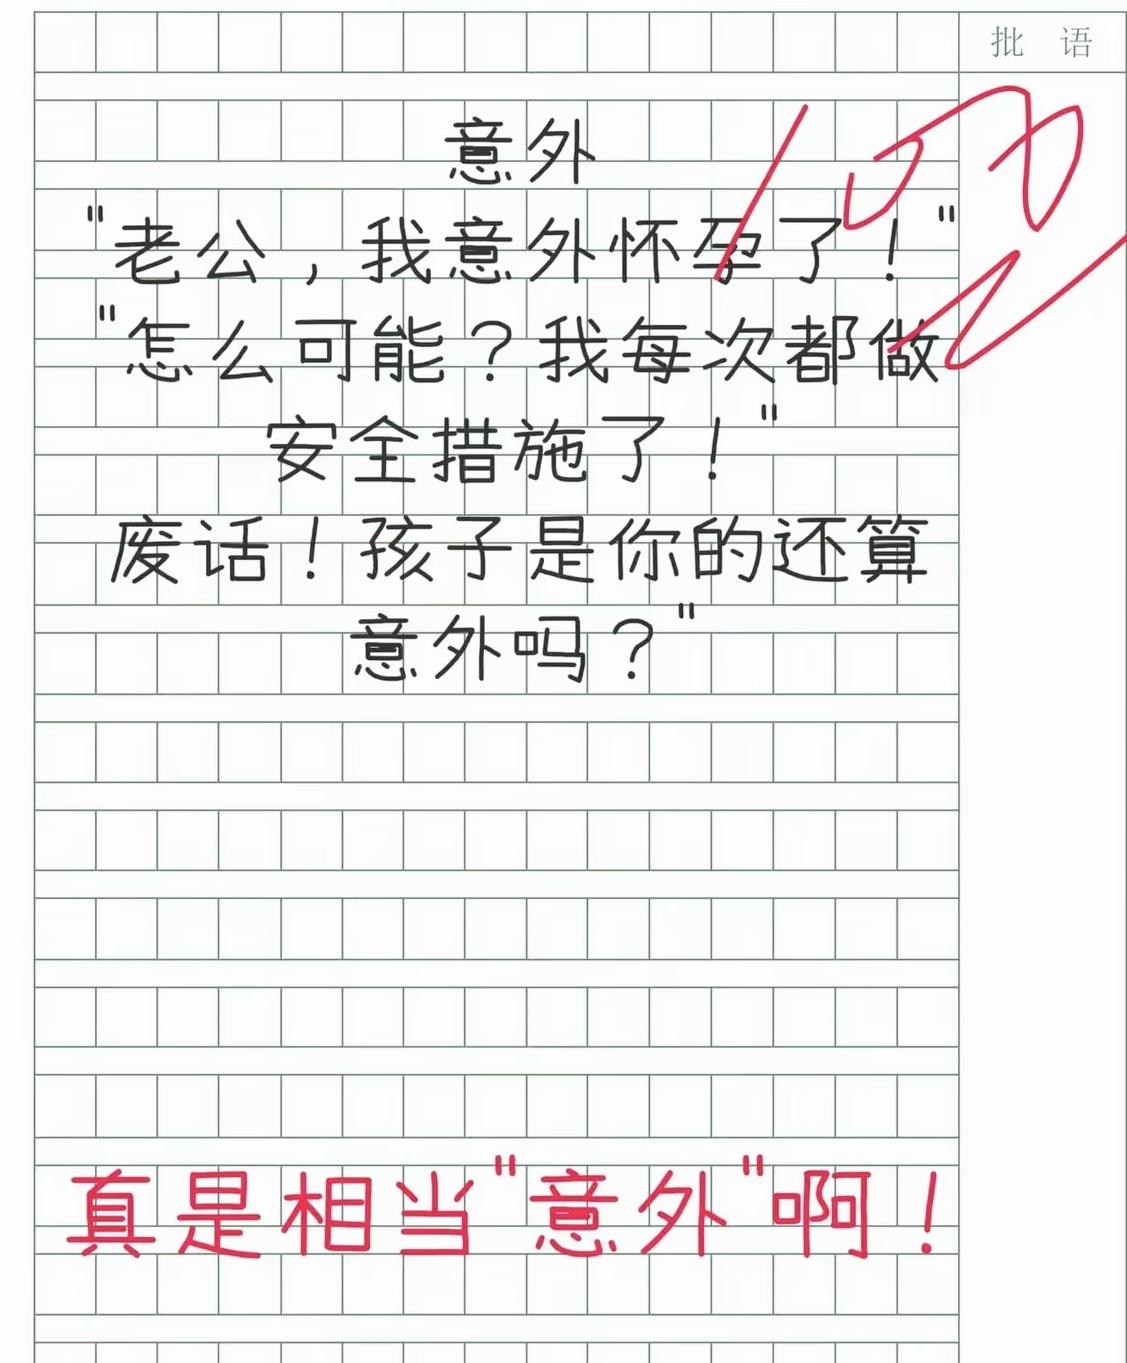 批 语
100
意外
"老公，我意外怀孕了！"
"怎么可能？我每次都做
安全措施了！"
废话！孩子是你的还算
意外吗？"
真是相当"意外"啊！